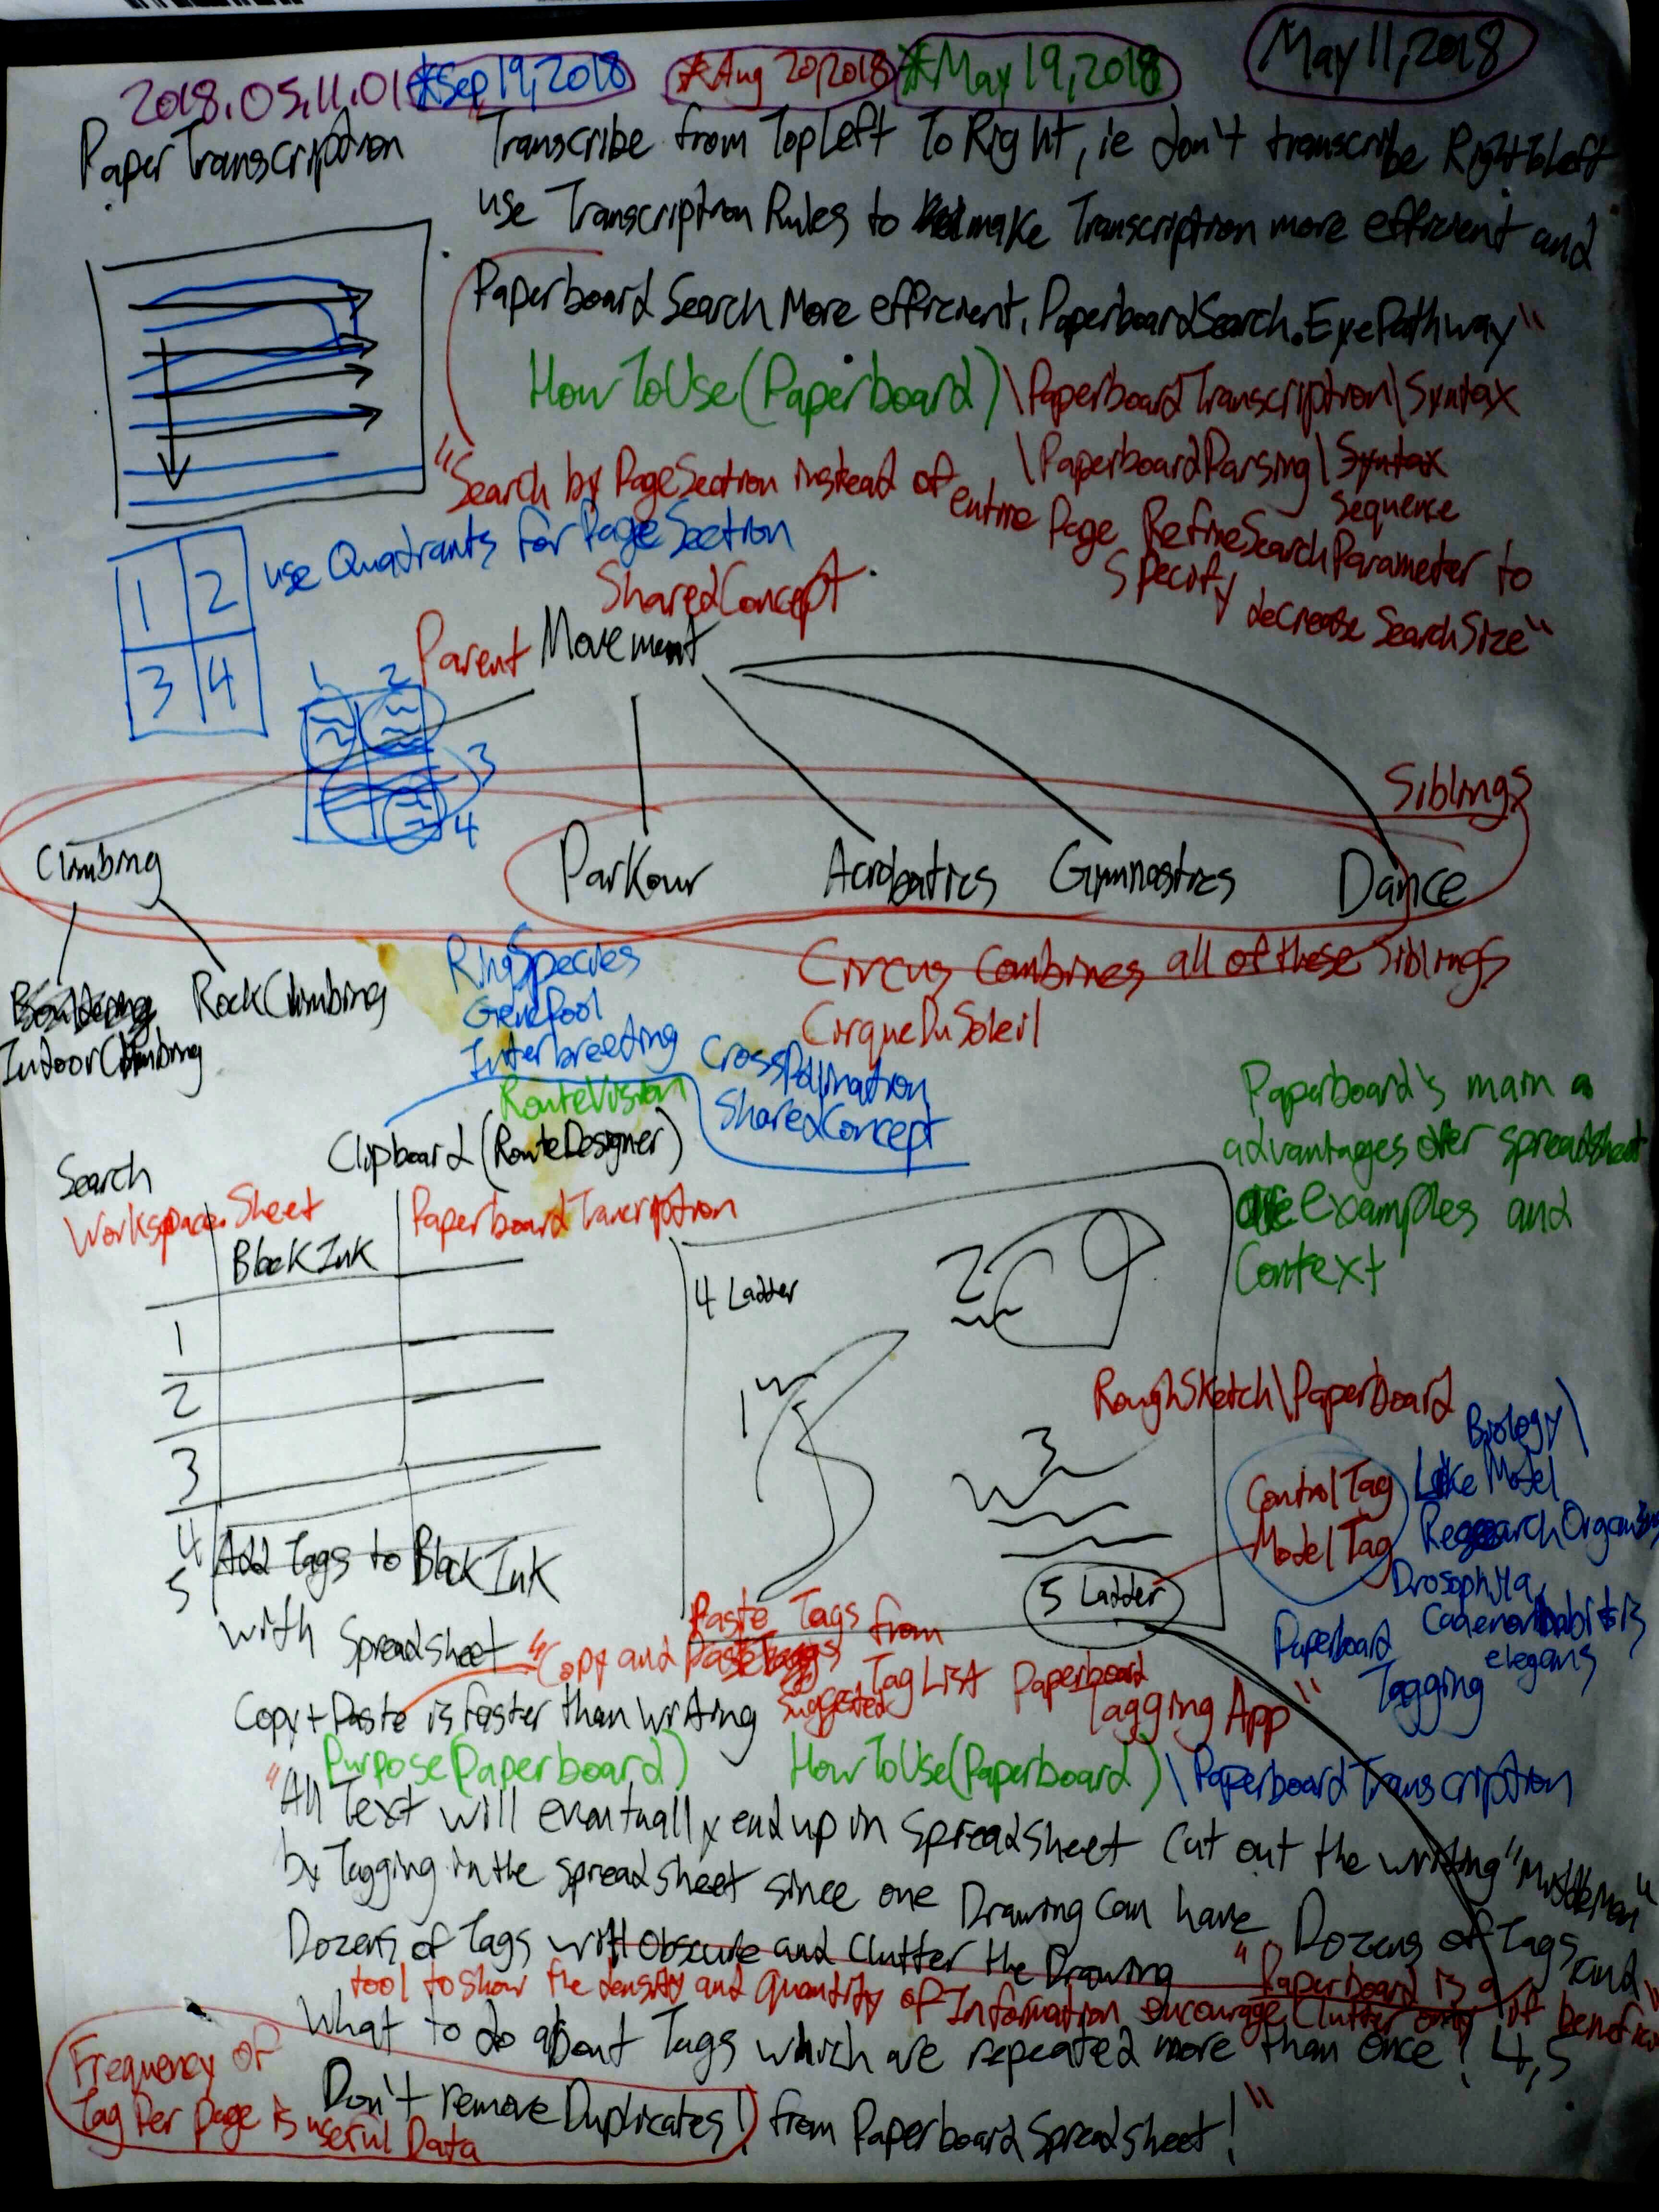 2018.05.11.01 *Sep 19, 2018 *Aug 20, 2018 *May 19, 2018 May 11, 2018
Paper Transcription
"Transcribe from TopLeft To Right, ie don't transcribe RightToLeft
use Transcription Rules to make Transcription more efficient and
PaperboardSearch More efficient, PaperboardSearch.EyePathway"
HowToUse(Paperboard)\PaperboardTranscription\Syntax
\PaperboardParsing\Syntax
sequence
"Search by PageSection instead of
entire Page RefineSearchParameter to
Specify decrease SearchSize"
1 2
3 4
use Quadrants for PageSection
SharedConcept
Parent Movement
1 2
3
4
Siblings
Climbing Parkour Acrobatics Gymnastics Dance
RockClimbing
IndoorClimbing
RingSpecies
GenePool
Interbreeding
CrossPollination
SharedConcept
Circus Combines all of these Siblings
CirqueDuSoleil
RouteVision
Clipboard (RouteDesigner)
Paperboard's main
advantages over spreadsheet
are Examples and
Context
Search
Workspace.Sheet
BlackInk
PaperboardTranscription
1
2
3
4
5
4 Ladder
2
1
3
5 Ladder
RoughSketch\Paperboard
ControlTag
ModelTag
Biology\
Like Model
Research Organism
Drosophila,
elegans
Paperboard
Tagging
Add Tags to BlackInk
with Spreadsheet
Paste Tags from
"Copy and Paste Tags
Suggested TagList Paperboard
Tagging App"
Copy + Paste is faster than writing
Purpose(Paperboard) HowToUse(Paperboard)\PaperboardTranscription
"All Text will eventually end up in Spreadsheet Cut out the writing "Middleman"
by Tagging in the spreadsheet since one Drawing can have Dozens of Tags and
Dozens of Tags will Obscure and Clutter the Drawing
"Paperboard is a
tool to show the density and quantity of Information encourage Clutter only if
What to do about Tags which are repeated more than once? 4,5
Don't remove Duplicates! from Paperboard Spreadsheet!"
Frequency of
Tag Per page is useful Data